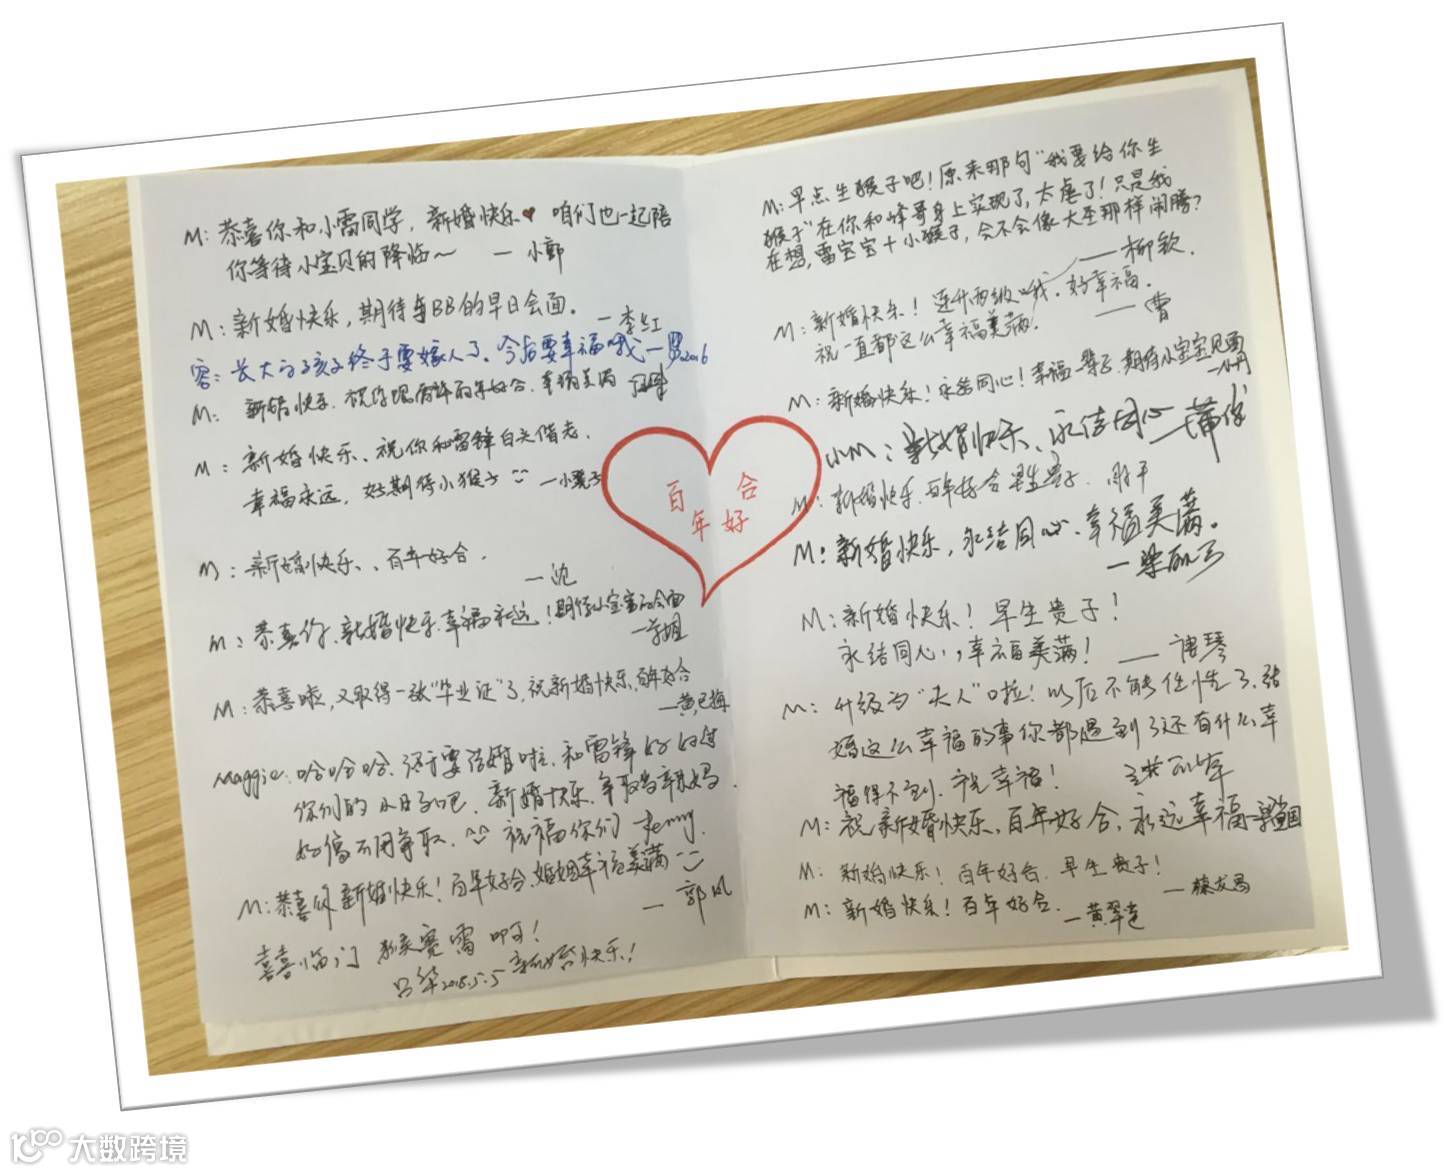 M：恭喜你和小雷同学，新婚快乐♥ 咱们也一起陪
你等待小宝贝的降临～ — 小郭
M：新婚快乐，期待与BB的早日会面。 —李红
容：长大的孩子终于要嫁人了、今后要幸福哦— 2016
M： 新婚快乐、祝你 百年好合、幸福美满
M：新婚快乐、祝你和雷锋白头偕老、
幸福永远，好期待小猴子 —小
M：新婚快乐、、百年好合．
—沈
M：恭喜你、新婚快乐 幸福永远！期待小宝宝的会面
M：恭喜啦，又取得一张“毕业证”了，祝新婚快乐，百年好合
—黄 梅
Maggie：哈哈哈、终于要结婚啦，和雷锋好好过
你们的小日子吧．新婚快乐、争取当辣妈．
好像不用争取．^^ 祝福你们 Jenny.
M：恭喜你 新婚快乐！百年好合、婚姻幸福美满
— 郭风
喜喜临门 猴赛雷 呵！
2016.5.5 新婚快乐！
百 合
年 好
M：早点生猴子吧！原来那句“我要给你生
猴子”在你和峰哥身上实现了，太虐了！只是我
在想，雷宝宝＋小猴子，会不会像大圣那样闹腾？
——柳钦．
M：新婚快乐！连升两级哦．好幸福．
祝一直都这么幸福美满． ——曹
M：新婚快乐！永结同心！幸福一辈子、期待小宝宝见面
小M：新婚快乐、永结同心—蒲
M：新婚快乐、百年好合 早生贵子．
M：新婚快乐，永结同心、幸福美满。
—梁丽
M：新婚快乐！早生贵子！
永结同心，，幸福美满！ ——唐琴
M：升级为“夫人”啦！以后不能任性了、结
婚这么幸福的事你都遇到了还有什么幸
福得不到．祝幸福！
M：祝新婚快乐、百年好合、永远幸福—
M：新婚快乐！百年好合．早生贵子！
M：新婚快乐！百年好合． —黄翠莲
大数跨境